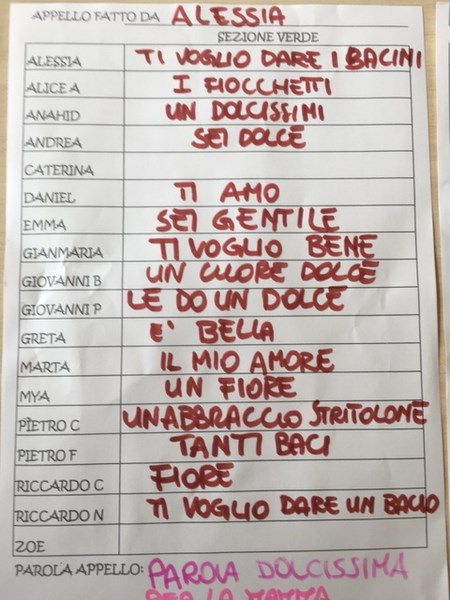 APPELLO FATTO DA ALESSIA
SEZIONE VERDE
ALESSIA TI VOGLIO DARE I BACINI
ALICE A I FIOCCHETTI
ANAHID UN DOLCISSIMI
ANDREA SEI DOLCE
CATERINA
DANIEL TI AMO
EMMA SEI GENTILE
GIANMARIA TI VOGLIO BENE
GIOVANNI B UN CUORE DOLCE
GIOVANNI P LE DO UN DOLCE
GRETA E' BELLA
MARTA IL MIO AMORE
MYA UN FIORE
PIETRO C UN ABBRACCIO STRITOLONE
PIETRO F TANTI BACI
RICCARDO C FIORE
RICCARDO N TI VOGLIO DARE UN BACIO
ZOE
PAROLA APPELLO: PAROLA DOLCISSIMA
PER LA MAMMA